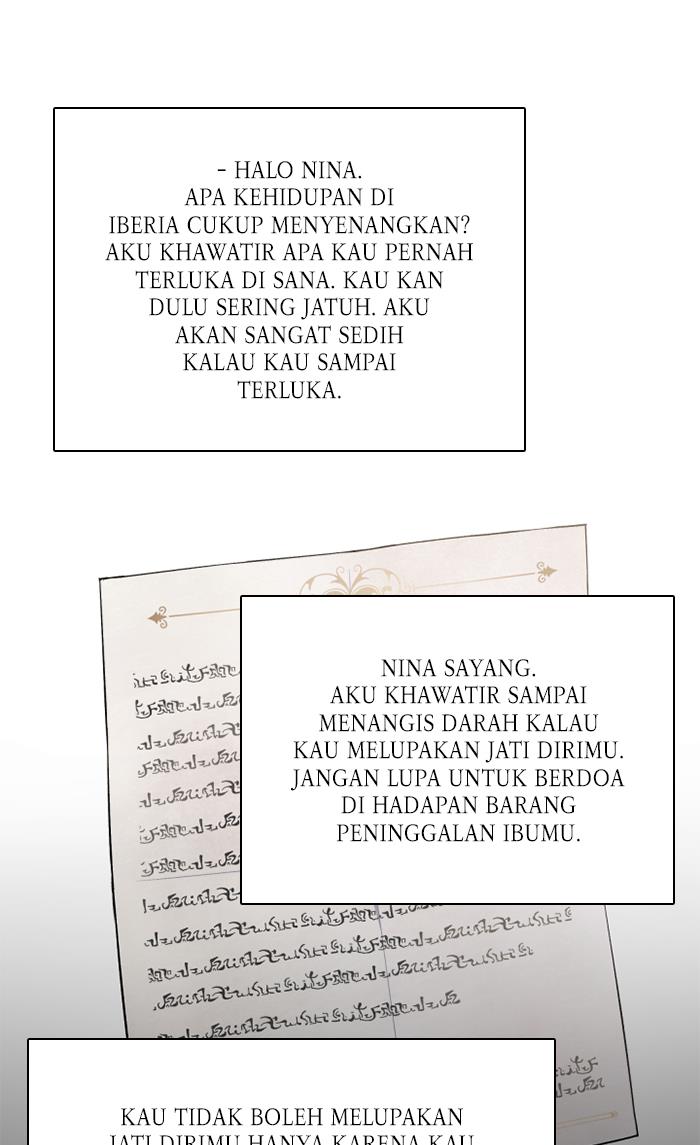 - HALO NINA.
APA KEHIDUPAN DI
IBERIA CUKUP MENYENANGKAN?
AKU KHAWATIR APA KAU PERNAH
TERLUKA DI SANA. KAU KAN
DULU SERING JATUH. AKU
AKAN SANGAT SEDIH
KALAU KAU SAMPAI
TERLUKA.
NINA SAYANG.
AKU KHAWATIR SAMPAI
MENANGIS DARAH KALAU
KAU MELUPAKAN JATI DIRIMU.
JANGAN LUPA UNTUK BERDOA
DI HADAPAN BARANG
PENINGGALAN IBUMU.
KAU TIDAK BOLEH MELUPAKAN
JATI DIRIMU HANYA KARENA KAU